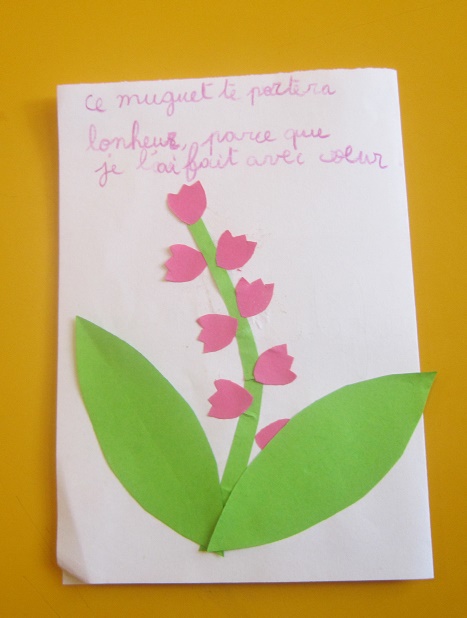 ce muguet te portera
bonheur, parce que
je l'ai fait avec cœur